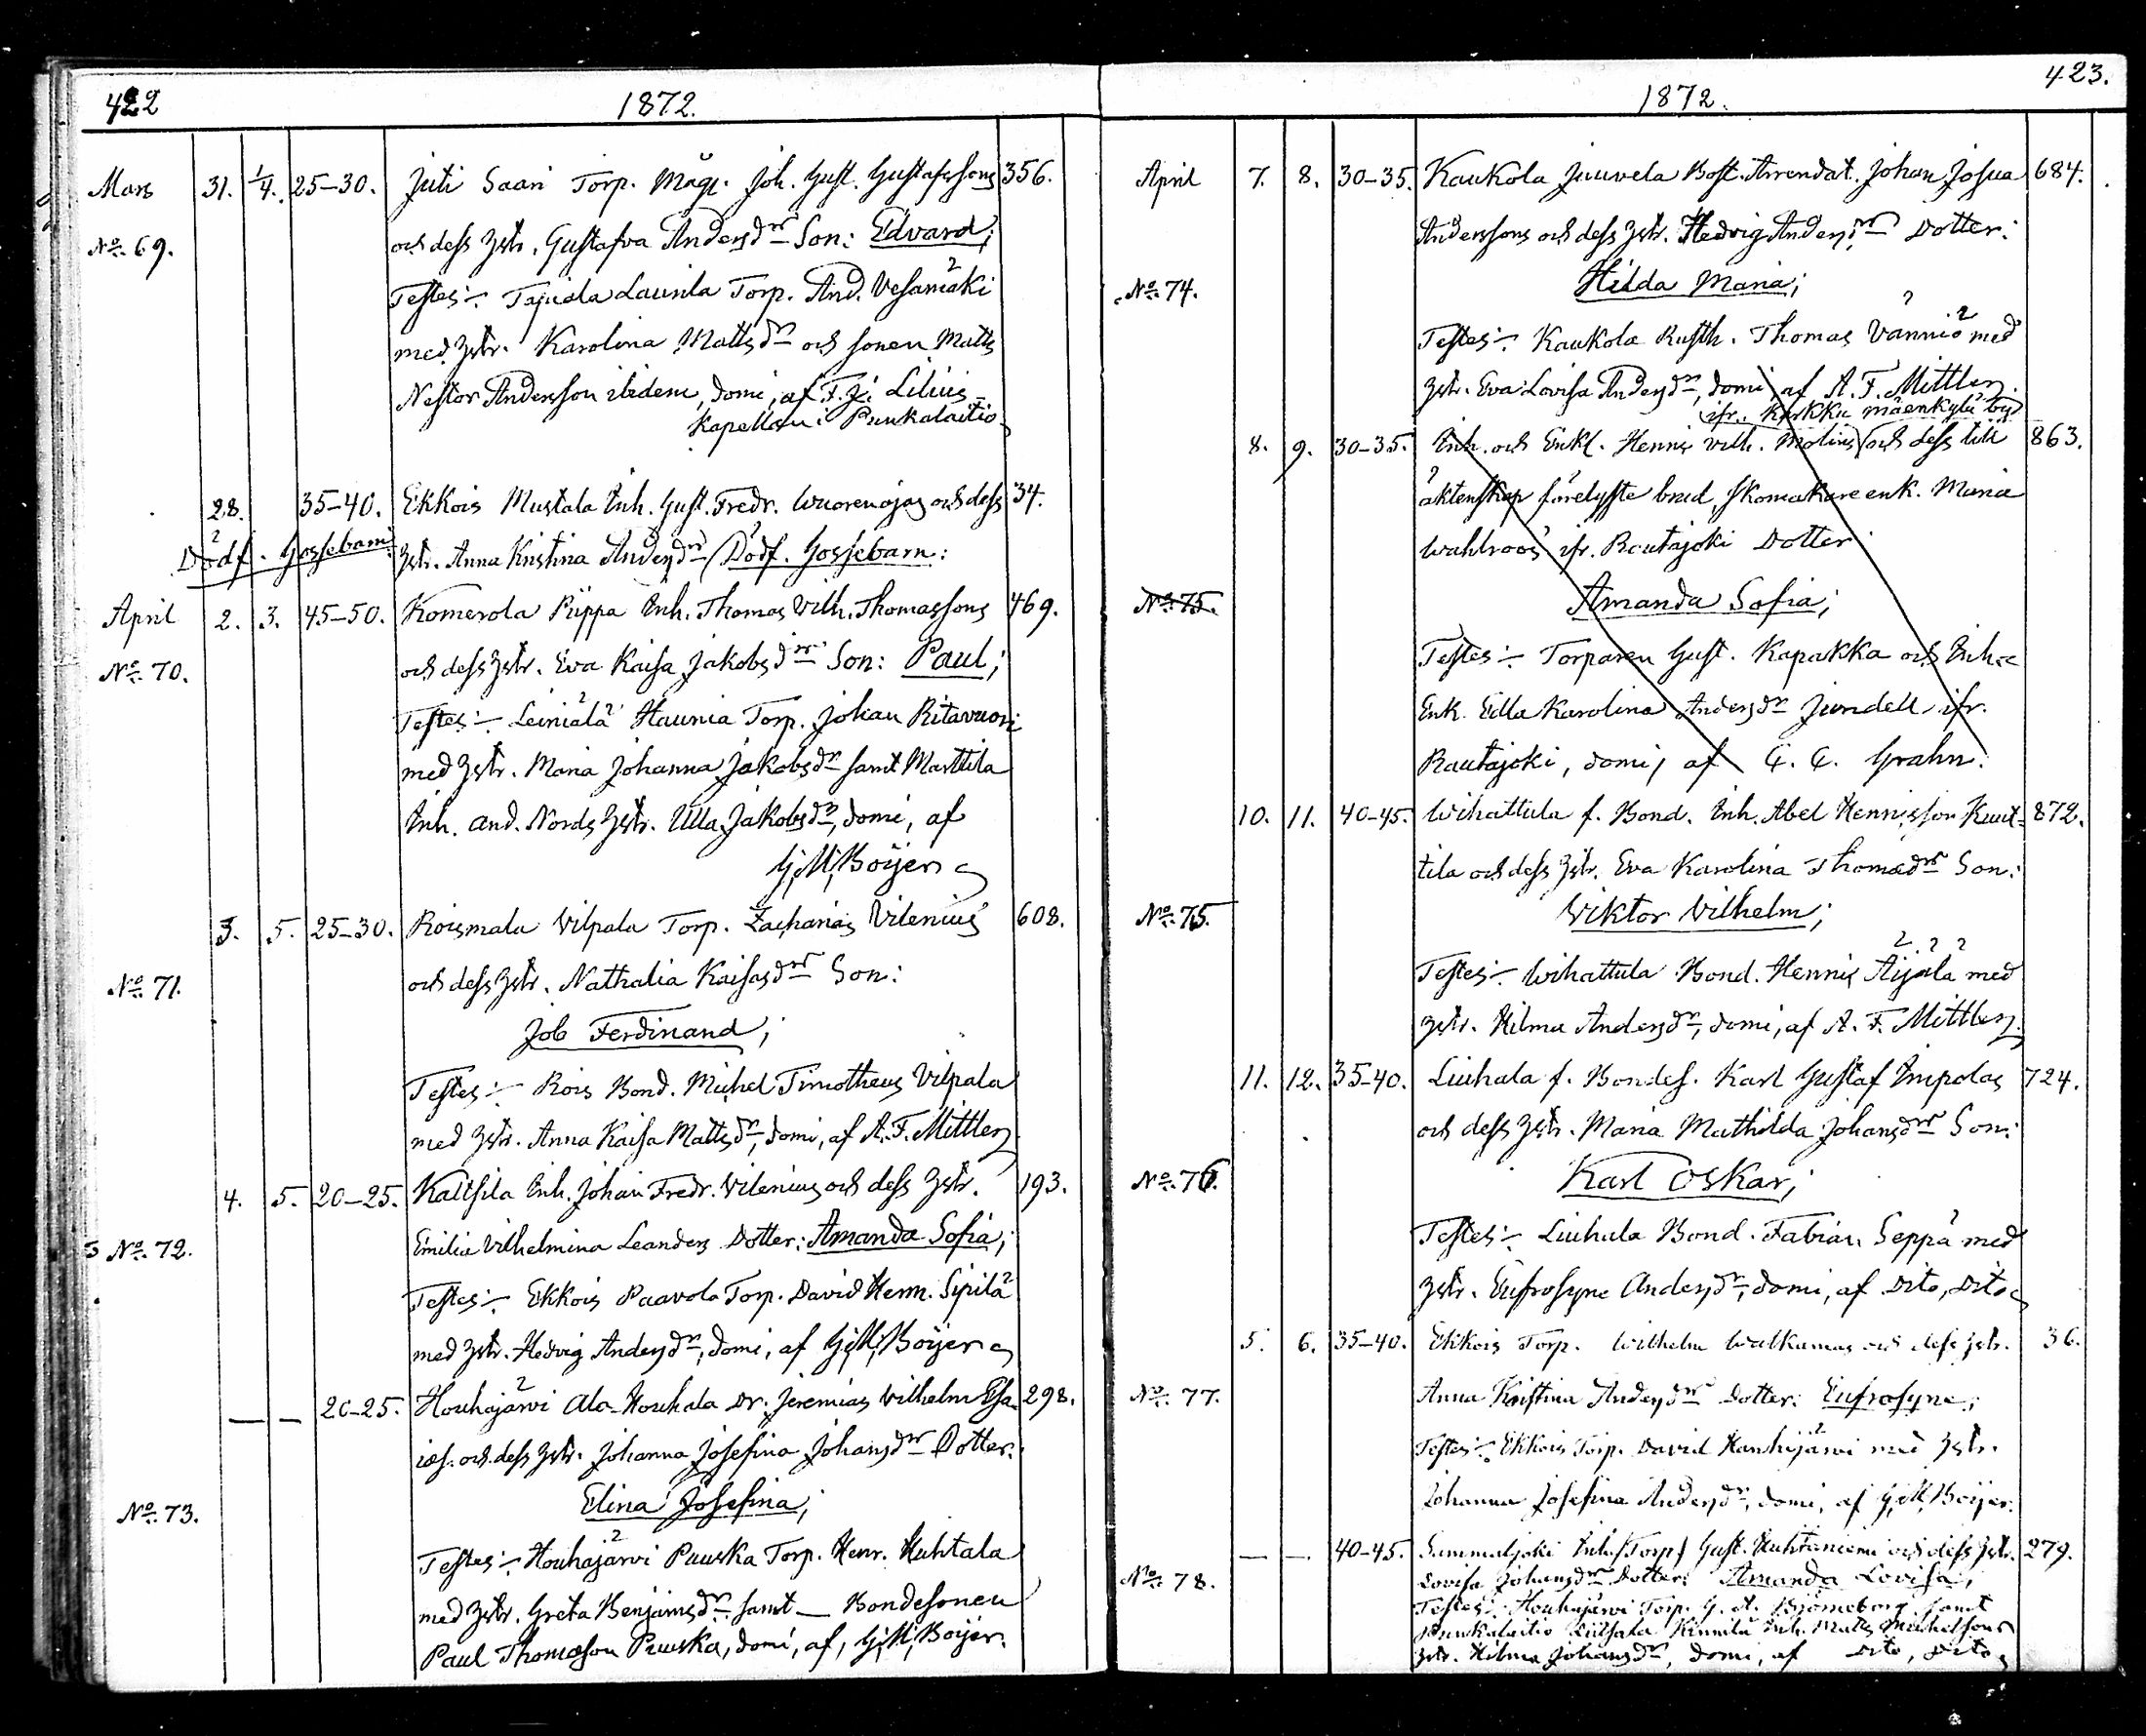 422
1872.
Mars 31. 1/4. 25-30. Juti Saari Torp. Måg. Joh. Gust. Gustafssons 356.
och dess hstr. Gustafva Andersdr Son: Edvard;
No. 69.
Testes: Torp. And. Vesamäki
med hstr. Karolina Mattsdr och sonen Matts
Nestor Andersson ibidem, domi, af F. J. Lilius
Kapellan i Punkalaitio
28. 35-40. Ekkois Mustala Inh. Gust. Fredr. Wuorenojas och dess 34.
Dödf. Gossebarn hstr. Anna Kristina Andersdr Dödf. Gossebarn:
April 2. 3. 45-50. Komerola Piippa Inh. Thomas Vilh. Thomassons 469.
No. 70. och dess hstr. Eva Kaisa Jakobsdr Son: Paul;
Testes: Leiniälä Haunia Torp. Johan Ritavuori
med hstr. Maria Johanna Jakobsdr samt Marttila
Inh. And. Nords hstr. Ulla Jakobsdr, domi, af
G. M. Boijer
3. 5. 25-30. Roismala Vilpala Torp. Zacharias Vilenius 608.
No. 71. och dess hstr. Nathalia Kaisasdr Son:
Job Ferdinand;
Testes: Rois Bond. Michel Timotheus Vilpala
med hstr. Anna Kaisa Mattsdr, domi, af A. F. Mittler
4. 5. 20-25. Kaltsila Inh. Johan Fredr. Vilenius och dess hstr. 193.
No. 72. Emilia Vilhelmina Leanders Dotter: Amanda Sofia;
Testes: Ekkois Paavola Torp. David Herm. Sipilä
med hstr. Hedvig Andersdr, domi, af G. M. Boijer
— — 20-25. Houhajärvi Ala-Houhala Dr. Jeremias Vilhelm Esa- 298.
ias. och dess hstr. Johanna Josefina Johansdr Dotter:
Elina Josefina;
No. 73.
Testes: Houhajärvi Puuska Torp. Henr. Huhtala
med hstr. Greta Benjamsdr samt — Bondesonen
Paul Thomasson Puuska, domi, af, G. M. Boijer.
423.
1872.
April 7. 8. 30-35. Kaukola Juuvela Bost. Arrendat. Johan Josua 684.
Anderssons och dess hstr. Hedvig Andersdr Dotter:
No. 74. Hilda Maria;
Testes: Kaukola Rusth. Thomas Vänniö med
hstr. Eva Lovisa Andersdr, domi, af A. F. Mittler.
ifr. Karkku mäenkylä by
8. 9. 30-35. Inh. och Enkl. Henric Vilh. Molins och dess till 863.
äktenskap förelyste brud, skomakare enk. Maria
Wahlroos ifr. Rautajoki Dotter
No. 75. Amanda Sofia;
Testes: Torparen Gust. Kapakka och Inh.
Enk. Edla Karolina Andersdr Jundell ifr.
Rautajoki, domi, af C. C. Grahn.
10. 11. 40-45. Wihattula f. Bond. Inh. Abel Hennisson Kunt- 872.
tila och dess hstr. Eva Karolina Thomasdr Son:
No. 75. Viktor Vilhelm;
Testes: Wihattula Bond. Hennis Äijälä med
hstr. Hilma Andersdr, domi, af A. F. Mittler
11. 12. 35-40. Liuhala f. Bondes. Karl Gustaf Impolas 724.
och dess hstr. Maria Mathilda Johansdr Son:
No. 76. Karl Oskar;
Testes: Liuhala Bond. Fabian Seppä med
hstr. Eufrosyne Andersdr, domi, af Dito, Dito
5. 6. 35-40. Ekkois Torp. Wilhelm Walkamas och dess hstr. 36.
No. 77. Anna Kristina Andersdr Dotter: Eufrosyne;
Testes: Ekkois Torp. David Hanhijärvi med hstr.
Johanna Josefina Andersdr, domi, af G. M. Boijer.
— — 40-45. Sammaljoki Inh. (Torp) Gust. Huhtaniemi och dess hstr. 279.
No. 78. Lovisa Johansdr Dotter: Amanda Lovisa;
Testes: Houhajärvi Torp. G. A. Björneborg samt
Punkalaitio Kinnilä Inh. Matts Michelsons
hstr. Hilma Johansdr, domi, af Dito, Dito